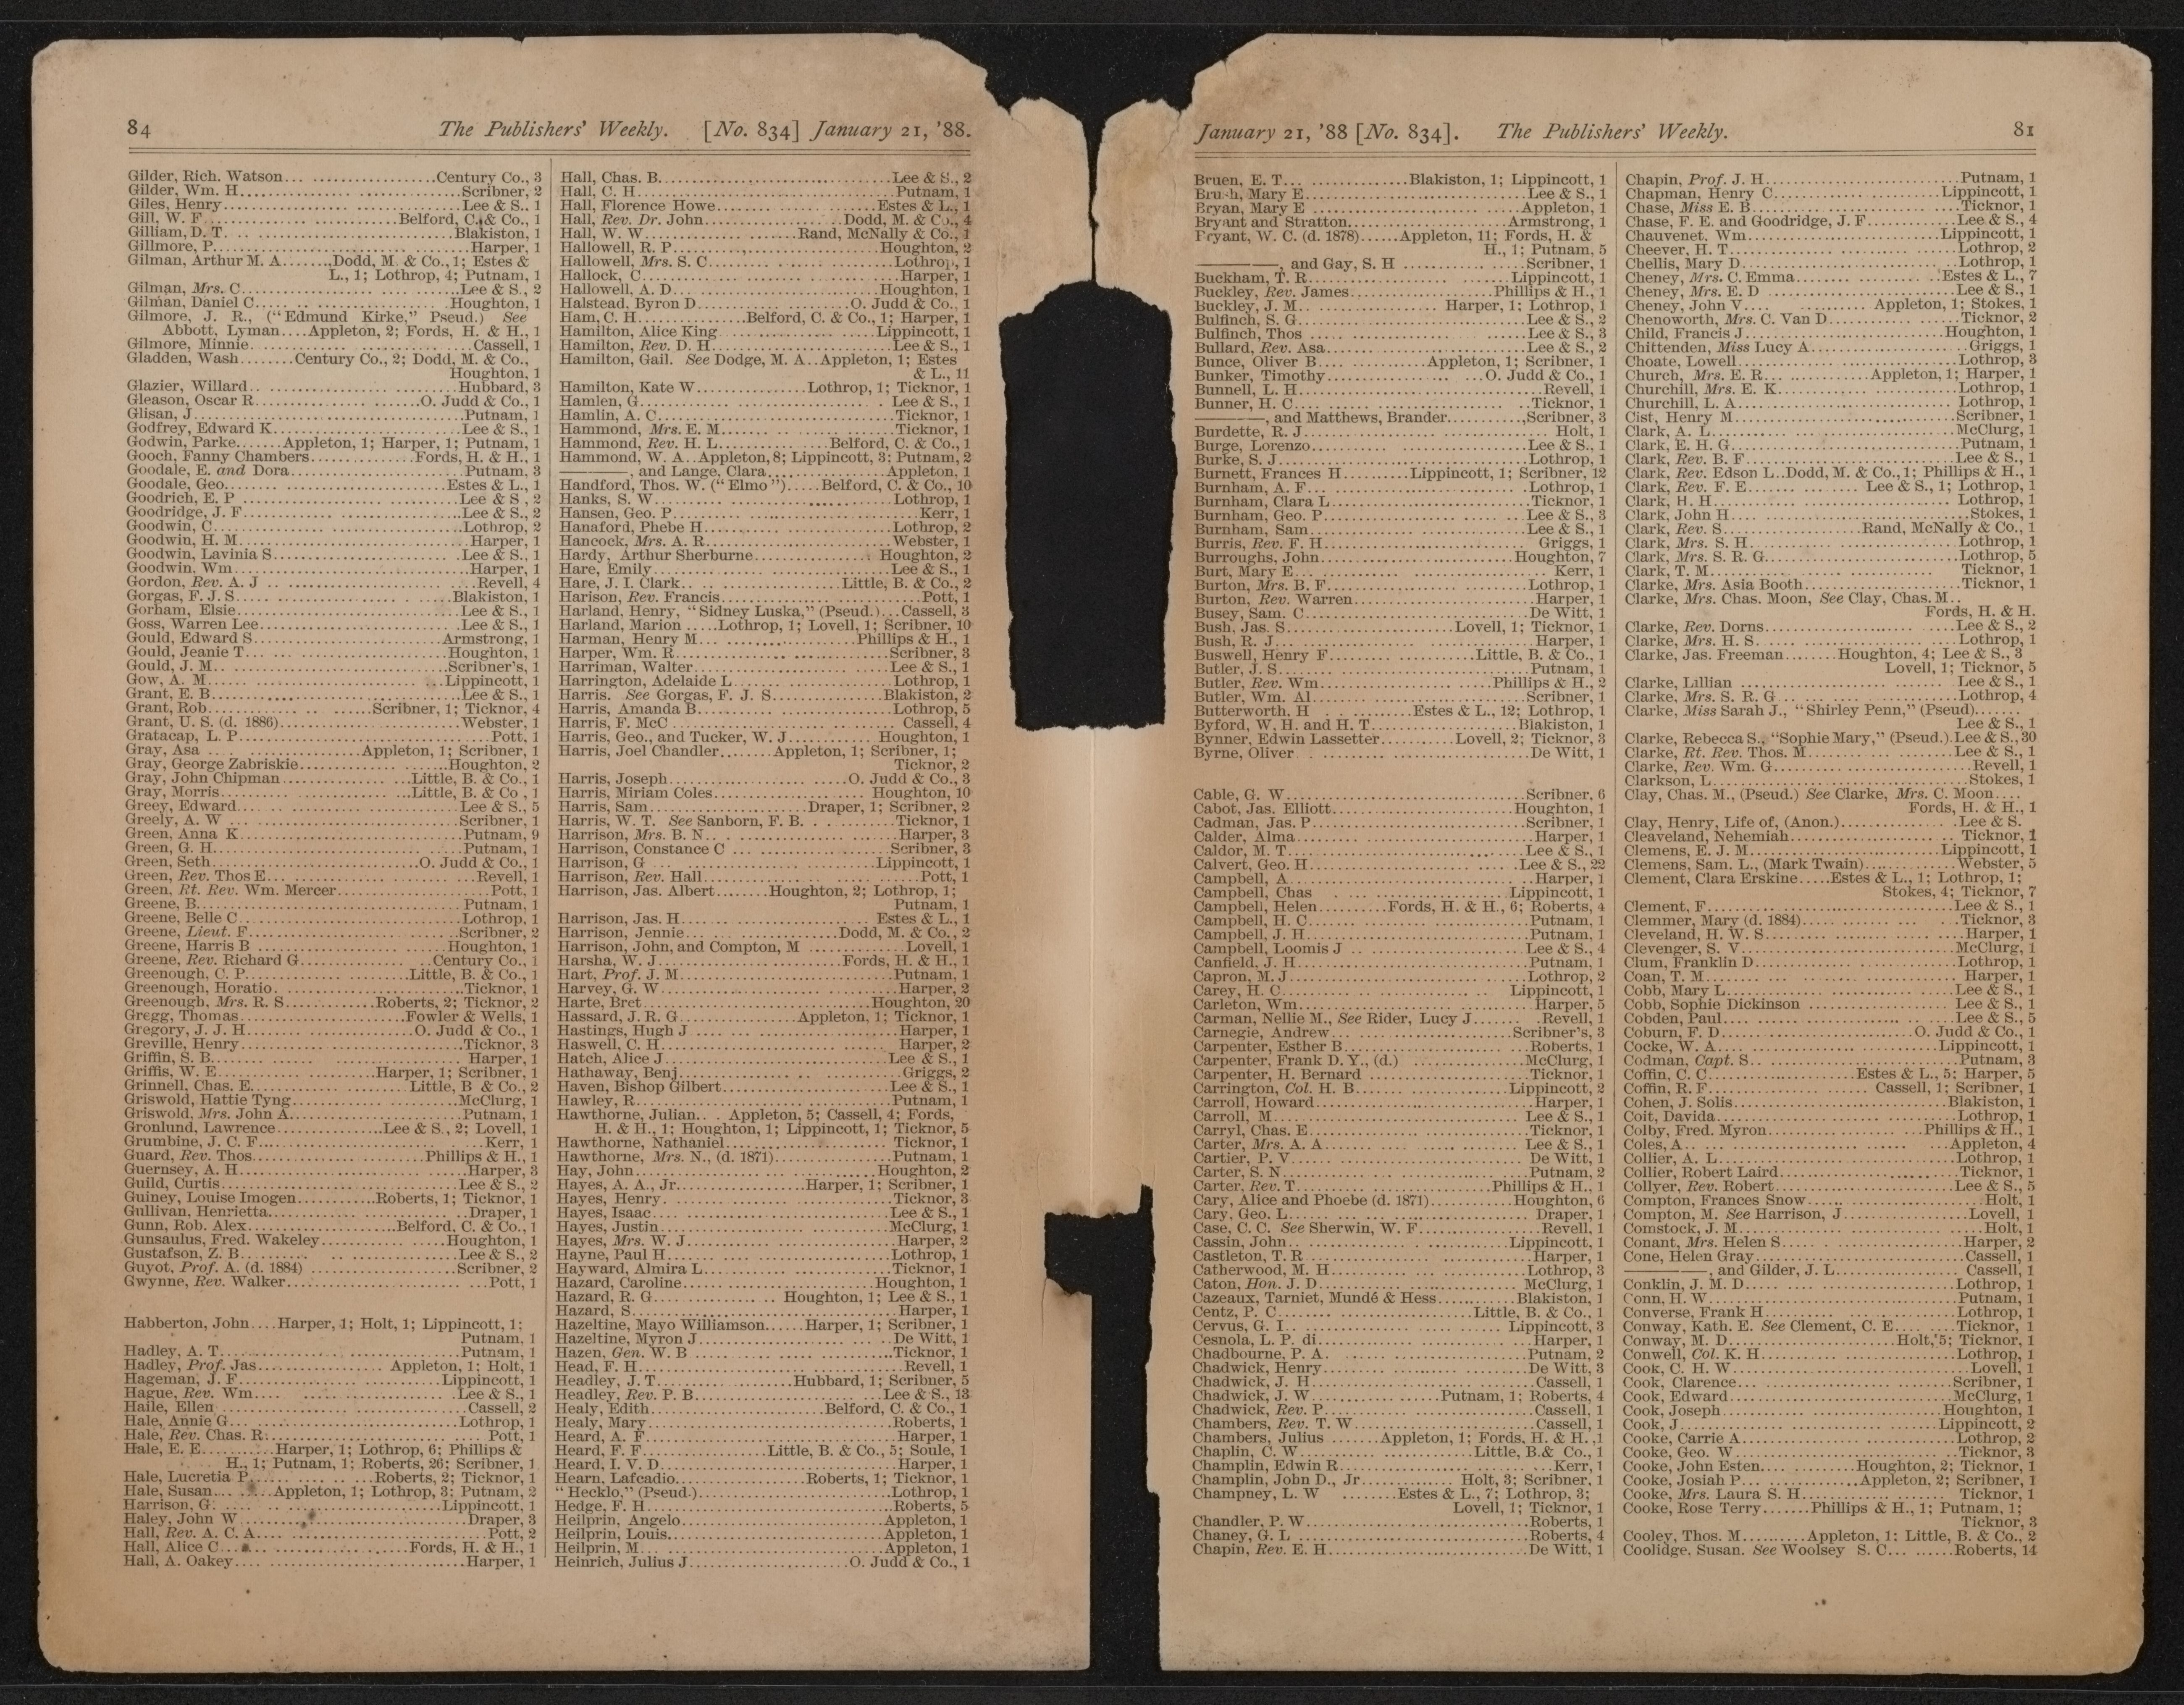 84
The Publishers' Weekly. [No. 834] January 21, '88.
Gilder, Rich. Watson... ..................Century Co., 3
Gilder, Wm. H..........................Scribner, 2
Giles, Henry..........................Lee & S., 1
Gill, W. F..................Belford, C. & Co., 1
Gilliam, D. T..........................Blakiston, 1
Gillmore, P..........................Harper, 1
Gilman, Arthur M. A.......Dodd, M. & Co., 1; Estes &
L., 1; Lothrop, 4; Putnam, 1
Gilman, Mrs. C..........................Lee & S., 2
Gilman, Daniel C..........................Houghton, 1
Gilmore, J. R., ("Edmund Kirke," Pseud.) See
Abbott, Lyman....Appleton, 2; Fords, H. & H., 1
Gilmore, Minnie..........................Cassell, 1
Gladden, Wash.......Century Co., 2; Dodd, M. & Co.,
Houghton, 1
Glazier, Willard..........................Hubbard, 3
Gleason, Oscar R..................O. Judd & Co., 1
Glisan, J..........................Putnam, 1
Godfrey, Edward K..........................Lee & S., 1
Godwin, Parke......Appleton, 1; Harper, 1; Putnam, 1
Gooch, Fanny Chambers.............Fords, H. & H., 1
Goodale, E. and Dora..................Putnam, 3
Goodale, Geo..........................Estes & L., 1
Goodrich, E. P..........................Lee & S., 2
Goodridge, J. F..........................Lee & S., 2
Goodwin, C..........................Lothrop, 2
Goodwin, H. M..........................Harper, 1
Goodwin, Lavinia S..................Lee & S., 1
Goodwin, Wm..........................Harper, 1
Gordon, Rev. A. J..................Revell, 4
Gorgas, F. J. S..................Blakiston, 1
Gorham, Elsie..................Lee & S., 1
Goss, Warren Lee..................Lee & S., 1
Gould, Edward S..................Armstrong, 1
Gould, Jeanie T..................Houghton, 1
Gould, J. M..................Scribner's, 1
Gow, A. M..................Lippincott, 1
Grant, E. B..................Lee & S., 1
Grant, Rob..................Scribner, 1; Ticknor, 4
Grant, U. S. (d. 1886)..................Webster, 1
Gratacap, L. P..................Pott, 1
Gray, Asa..................Appleton, 1; Scribner, 1
Gray, George Zabriskie..................Houghton, 2
Gray, John Chipman..................Little, B. & Co., 1
Gray, Morris..................Little, B. & Co., 1
Greey, Edward..................Lee & S., 5
Greely, A. W..................Scribner, 1
Green, Anna K..................Putnam, 9
Green, G. H..................Putnam, 1
Green, Seth..................O. Judd & Co., 1
Green, Rev. Thos E..................Revell, 1
Green, Rt. Rev. Wm. Mercer..................Pott, 1
Greene, B..................Putnam, 1
Greene, Belle C..................Lothrop, 1
Greene, Lieut. F..................Scribner, 2
Greene, Harris B..................Houghton, 1
Greene, Rev. Richard G..................Century Co., 1
Greenough, C. P..................Little, B. & Co., 1
Greenough, Horatio..................Ticknor, 1
Greenough, Mrs. R. S.............Roberts, 2; Ticknor, 2
Gregg, Thomas..................Fowler & Wells, 1
Gregory, J. J. H..................O. Judd & Co., 1
Greville, Henry..................Ticknor, 3
Griffin, S. B..................Harper, 1
Griffis, W. E..................Harper, 1; Scribner, 1
Grinnell, Chas. E..................Little, B & Co., 2
Griswold, Hattie Tyng..................McClurg, 1
Griswold, Mrs. John A..................Putnam, 1
Gronlund, Lawrence.............Lee & S., 2; Lovell, 1
Grumbine, J. C. F..................Kerr, 1
Guard, Rev. Thos..................Phillips & H., 1
Guernsey, A. H..................Harper, 3
Guild, Curtis..................Lee & S., 2
Guiney, Louise Imogen..........Roberts, 1; Ticknor, 1
Gullivan, Henrietta..................Draper, 1
Gunn, Rob. Alex..................Belford, C. & Co., 1
Gunsaulus, Fred. Wakeley..................Houghton, 1
Gustafson, Z. B..................Lee & S., 2
Guyot, Prof. A. (d. 1884)..................Scribner, 2
Gwynne, Rev. Walker..................Pott, 1
Habberton, John....Harper, 1; Holt, 1; Lippincott, 1;
Putnam, 1
Hadley, A. T..................Putnam, 1
Hadley, Prof. Jas..................Appleton, 1; Holt, 1
Hageman, J. F..................Lippincott, 1
Hague, Rev. Wm..................Lee & S., 1
Haile, Ellen..................Cassell, 2
Hale, Annie G..................Lothrop, 1
Hale, Rev. Chas. R..................Pott, 1
Hale, E. E..........Harper, 1; Lothrop, 6; Phillips &
H., 1; Putnam, 1; Roberts, 26; Scribner, 1
Hale, Lucretia P..................Roberts, 2; Ticknor, 1
Hale, Susan........Appleton, 1; Lothrop, 3; Putnam, 2
Harrison, G..................Lippincott, 1
Haley, John W..................Draper, 3
Hall, Rev. A. C. A..................Pott, 2
Hall, Alice C..................Fords, H. & H., 1
Hall, A. Oakey..................Harper, 1
Hall, Chas. B..................Lee & S., 2
Hall, C. H..................Putnam, 1
Hall, Florence Howe..................Estes & L., 1
Hall, Rev. Dr. John..................Dodd, M. & Co., 4
Hall, W. W..................Rand, McNally & Co., 1
Hallowell, R. P..................Houghton, 2
Hallowell, Mrs. S. C..................Lothrop, 1
Hallock, C..................Harper, 1
Hallowell, A. D..................Houghton, 1
Halstead, Byron D..................O. Judd & Co., 1
Ham, C. H..............Belford, C. & Co., 1; Harper, 1
Hamilton, Alice King..................Lippincott, 1
Hamilton, Rev. D. H..................Lee & S., 1
Hamilton, Gail. See Dodge, M. A..Appleton, 1; Estes
& L., 11
Hamilton, Kate W..................Lothrop, 1; Ticknor, 1
Hamlen, G..................Lee & S., 1
Hamlin, A. C..................Ticknor, 1
Hammond, Mrs. E. M..................Ticknor, 1
Hammond, Rev. H. L..................Belford, C. & Co., 1
Hammond, W. A..Appleton, 8; Lippincott, 3; Putnam, 2
————, and Lange, Clara..................Appleton, 1
Handford, Thos. W. ("Elmo").....Belford, C. & Co., 10
Hanks, S. W..................Lothrop, 1
Hansen, Geo. P..................Kerr, 1
Hanaford, Phebe H..................Lothrop, 2
Hancock, Mrs. A. R..................Webster, 1
Hardy, Arthur Sherburne..................Houghton, 2
Hare, Emily..................Lee & S., 1
Hare, J. I. Clark..................Little, B. & Co., 2
Harison, Rev. Francis..................Pott, 1
Harland, Henry, "Sidney Luska," (Pseud.)...Cassell, 3
Harland, Marion.....Lothrop, 1; Lovell, 1; Scribner, 10
Harman, Henry M..................Phillips & H., 1
Harper, Wm. R..................Scribner, 3
Harriman, Walter..................Lee & S., 1
Harrington, Adelaide L..................Lothrop, 1
Harris. See Gorgas, F. J. S..................Blakiston, 2
Harris, Amanda B..................Lothrop, 5
Harris, F. McC..................Cassell, 4
Harris, Geo., and Tucker, W. J..................Houghton, 1
Harris, Joel Chandler........Appleton, 1; Scribner, 1;
Ticknor, 2
Harris, Joseph..................O. Judd & Co., 3
Harris, Miriam Coles..................Houghton, 10
Harris, Sam..................Draper, 1; Scribner, 2
Harris, W. T. See Sanborn, F. B..................Ticknor, 1
Harrison, Mrs. B. N..................Harper, 3
Harrison, Constance C..................Scribner, 3
Harrison, G..................Lippincott, 1
Harrison, Rev. Hall..................Pott, 1
Harrison, Jas. Albert.......Houghton, 2; Lothrop, 1;
Putnam, 1
Harrison, Jas. H..................Estes & L., 1
Harrison, Jennie..................Dodd, M. & Co., 2
Harrison, John, and Compton, M..................Lovell, 1
Harsha, W. J..................Fords, H. & H., 1
Hart, Prof. J. M..................Putnam, 1
Harvey, G. W..................Harper, 2
Harte, Bret..................Houghton, 20
Hassard, J. R. G..................Appleton, 1; Ticknor, 1
Hastings, Hugh J..................Harper, 1
Haswell, C. H..................Harper, 2
Hatch, Alice J..................Lee & S., 1
Hathaway, Benj..................Griggs, 2
Haven, Bishop Gilbert..................Lee & S., 1
Hawley, R..................Putnam, 1
Hawthorne, Julian... Appleton, 5; Cassell, 4; Fords,
H. & H., 1; Houghton, 1; Lippincott, 1; Ticknor, 5
Hawthorne, Nathaniel..................Ticknor, 1
Hawthorne, Mrs. N., (d. 1871)..................Putnam, 1
Hay, John..................Houghton, 2
Hayes, A. A., Jr..................Harper, 1; Scribner, 1
Hayes, Henry..................Ticknor, 3
Hayes, Isaac..................Lee & S., 1
Hayes, Justin..................McClurg, 1
Hayes, Mrs. W. J..................Harper, 2
Hayne, Paul H..................Lothrop, 1
Hayward, Almira L..................Ticknor, 1
Hazard, Caroline..................Houghton, 1
Hazard, R. G..................Houghton, 1; Lee & S., 1
Hazard, S..................Harper, 1
Hazeltine, Mayo Williamson......Harper, 1; Scribner, 1
Hazeltine, Myron J..................De Witt, 1
Hazen, Gen. W. B..................Ticknor, 1
Head, F. H..................Revell, 1
Headley, J. T..................Hubbard, 1; Scribner, 5
Headley, Rev. P. B..................Lee & S., 13
Healy, Edith..................Belford, C. & Co., 1
Healy, Mary..................Roberts, 1
Heard, A. F..................Harper, 1
Heard, F. F..................Little, B. & Co., 5; Soule, 1
Heard, I. V. D..................Harper, 1
Hearn, Lafcadio..................Roberts, 1; Ticknor, 1
"Hecklo," (Pseud.)..................Lothrop, 1
Hedge, F. H..................Roberts, 5
Heilprin, Angelo..................Appleton, 1
Heilprin, Louis..................Appleton, 1
Heilprin, M..................Appleton, 1
Heinrich, Julius J..................O. Judd & Co., 1
January 21, '88 [No. 834]. The Publishers' Weekly.
81
Bruen, E. T..................Blakiston, 1; Lippincott, 1
Brush, Mary E..................Lee & S., 1
Bryan, Mary E..................Appleton, 1
Bryant and Stratton..................Armstrong, 1
Bryant, W. C. (d. 1878)......Appleton, 11; Fords, H. &
H., 1; Putnam, 5
————, and Gay, S. H..................Scribner, 1
Buckham, T. R..................Lippincott, 1
Buckley, Rev. James..................Phillips & H., 1
Buckley, J. M..................Harper, 1; Lothrop, 1
Bulfinch, S. G..................Lee & S., 2
Bulfinch, Thos..................Lee & S., 3
Bullard, Rev. Asa..................Lee & S., 2
Bunce, Oliver B..................Appleton, 1; Scribner, 1
Bunker, Timothy..................O. Judd & Co., 1
Bunnell, L. H..................Revell, 1
Bunner, H. C..................Ticknor, 1
————, and Matthews, Brander..................Scribner, 3
Burdette, R. J..................Holt, 1
Burge, Lorenzo..................Lee & S., 1
Burke, S. J..................Lothrop, 1
Burnett, Frances H..........Lippincott, 1; Scribner, 12
Burnham, A. F..................Lothrop, 1
Burnham, Clara L..................Ticknor, 1
Burnham, Geo. P..................Lee & S., 3
Burnham, Sam..................Lee & S., 1
Burris, Rev. F. H..................Griggs, 1
Burroughs, John..................Houghton, 7
Burt, Mary E..................Kerr, 1
Burton, Mrs. B. F..................Lothrop, 1
Burton, Rev. Warren..................Harper, 1
Busey, Sam. C..................De Witt, 1
Bush, Jas. S..................Lovell, 1; Ticknor, 1
Bush, R. J..................Harper, 1
Buswell, Henry F..................Little, B. & Co., 1
Butler, J. S..................Putnam, 1
Butler, Rev. Wm..................Phillips & H., 2
Butler, Wm. Al..................Scribner, 1
Butterworth, H..................Estes & L., 12; Lothrop, 1
Byford, W. H. and H. T..................Blakiston, 1
Bynner, Edwin Lassetter..........Lovell, 2; Ticknor, 3
Byrne, Oliver..................De Witt, 1
Cable, G. W..................Scribner, 6
Cabot, Jas. Elliott..................Houghton, 1
Cadman, Jas. P..................Scribner, 1
Calder, Alma..................Harper, 1
Caldor, M. T..................Lee & S., 1
Calvert, Geo. H..................Lee & S., 22
Campbell, A..................Harper, 1
Campbell, Chas..................Lippincott, 1
Campbell, Helen.........Fords, H. & H., 6; Roberts, 4
Campbell, H. C..................Putnam, 1
Campbell, J. H..................Putnam, 1
Campbell, Loomis J..................Lee & S., 4
Canfield, J. H..................Putnam, 1
Capron, M. J..................Lothrop, 2
Carey, H. C..................Lippincott, 1
Carleton, Wm..................Harper, 5
Carman, Nellie M., See Rider, Lucy J.......Revell, 1
Carnegie, Andrew..................Scribner's, 3
Carpenter, Esther B..................Roberts, 1
Carpenter, Frank D. Y., (d.)..................McClurg, 1
Carpenter, H. Bernard..................Ticknor, 1
Carrington, Col. H. B..................Lippincott, 2
Carroll, Howard..................Harper, 1
Carroll, M..................Lee & S., 1
Carryl, Chas. E..................Ticknor, 1
Carter, Mrs. A. A..................Lee & S., 1
Cartier, P. V..................De Witt, 1
Carter, S. N..................Putnam, 2
Carter, Rev. T..................Phillips & H., 1
Cary, Alice and Phoebe (d. 1871)..................Houghton, 6
Cary, Geo. L..................Draper, 1
Case, C. C. See Sherwin, W. F..................Revell, 1
Cassin, John..................Lippincott, 1
Castleton, T. R..................Harper, 1
Catherwood, M. H..................Lothrop, 3
Caton, Hon. J. D..................McClurg, 1
Cazeaux, Tarniet, Mundé & Hess..........Blakiston, 1
Centz, P. C..................Little, B. & Co., 1
Cervus, G. I..................Lippincott, 3
Cesnola, L. P. di..................Harper, 1
Chadbourne, P. A..................Putnam, 2
Chadwick, Henry..................De Witt, 3
Chadwick, J. H..................Cassell, 1
Chadwick, J. W..................Putnam, 1; Roberts, 4
Chadwick, Rev. P..................Cassell, 1
Chambers, Rev. T. W..................Cassell, 1
Chambers, Julius.......Appleton, 1; Fords, H. & H., 1
Chaplin, C. W..................Little, B.& Co., 1
Champlin, Edwin R..................Kerr, 1
Champlin, John D., Jr..................Holt, 3; Scribner, 1
Champney, L. W.........Estes & L., 7; Lothrop, 3;
Lovell, 1; Ticknor, 1
Chandler, P. W..................Roberts, 1
Chaney, G. L..................Roberts, 4
Chapin, Rev. E. H..................De Witt, 1
Chapin, Prof. J. H..................Putnam, 1
Chapman, Henry C..................Lippincott, 1
Chase, Miss E. B..................Ticknor, 1
Chase, F. E. and Goodridge, J. F..................Lee & S., 4
Chauvenet, Wm..................Lippincott, 1
Cheever, H. T..................Lothrop, 2
Chellis, Mary D..................Lothrop, 1
Cheney, Mrs. C. Emma..................Estes & L., 7
Cheney, Mrs. E. D..................Lee & S., 1
Cheney, John V..................Appleton, 1; Stokes, 1
Chenoworth, Mrs. C. Van D..................Ticknor, 2
Child, Francis J..................Houghton, 1
Chittenden, Miss Lucy A..................Griggs, 1
Choate, Lowell..................Lothrop, 3
Church, Mrs. E. R..................Appleton, 1; Harper, 1
Churchill, Mrs. E. K..................Lothrop, 1
Churchill, L. A..................Lothrop, 1
Cist, Henry M..................Scribner, 1
Clark, A. L..................McClurg, 1
Clark, E. H. G..................Putnam, 1
Clark, Rev. B. F..................Lee & S., 1
Clark, Rev. Edson L..Dodd, M. & Co., 1; Phillips & H., 1
Clark, Rev. F. E..................Lee & S., 1; Lothrop, 1
Clark, H. H..................Lothrop, 1
Clark, John H..................Stokes, 1
Clark, Rev. S..................Rand, McNally & Co., 1
Clark, Mrs. S. H..................Lothrop, 1
Clark, Mrs. S. R. G..................Lothrop, 5
Clark, T. M..................Ticknor, 1
Clarke, Mrs. Asia Booth..................Ticknor, 1
Clarke, Mrs. Chas. Moon, See Clay, Chas. M..
Fords, H. & H.
Clarke, Rev. Dorns..................Lee & S., 2
Clarke, Mrs. H. S..................Lothrop, 1
Clarke, Jas. Freeman........Houghton, 4; Lee & S., 3
Lovell, 1; Ticknor, 5
Clarke, Lillian..................Lee & S., 1
Clarke, Mrs. S. R. G..................Lothrop, 4
Clarke, Miss Sarah J., "Shirley Penn," (Pseud).......
Lee & S., 1
Clarke, Rebecca S., "Sophie Mary," (Pseud.).Lee & S., 30
Clarke, Rt. Rev. Thos. M..................Lee & S., 1
Clarke, Rev. Wm. G..................Revell, 1
Clarkson, L..................Stokes, 1
Clay, Chas. M., (Pseud.) See Clarke, Mrs. C. Moon....
Fords, H. & H., 1
Clay, Henry, Life of, (Anon.)..........Lee & S.
Cleaveland, Nehemiah..................Ticknor, 1
Clemens, E. J. M..................Lippincott, 1
Clemens, Sam. L., (Mark Twain)..................Webster, 5
Clement, Clara Erskine.....Estes & L., 1; Lothrop, 1;
Stokes, 4; Ticknor, 7
Clement, F..................Lee & S., 1
Clemmer, Mary (d. 1884)..................Ticknor, 3
Cleveland, H. W. S..................Harper, 1
Clevenger, S. V..................McClurg, 1
Clum, Franklin D..................Lothrop, 1
Coan, T. M..................Harper, 1
Cobb, Mary L..................Lee & S., 1
Cobb, Sophie Dickinson..................Lee & S., 1
Cobden, Paul..................Lee & S., 5
Coburn, F. D..................O. Judd & Co., 1
Cocke, W. A..................Lippincott, 1
Codman, Capt. S..................Putnam, 3
Coffin, C. C..................Estes & L., 5; Harper, 5
Coffin, R. F..................Cassell, 1; Scribner, 1
Cohen, J. Solis..................Blakiston, 1
Coit, Davida..................Lothrop, 1
Colby, Fred. Myron..................Phillips & H., 1
Coles, A..................Appleton, 4
Collier, A. L..................Lothrop, 1
Collier, Robert Laird..................Ticknor, 1
Collyer, Rev. Robert..................Lee & S., 5
Compton, Frances Snow..................Holt, 1
Compton, M. See Harrison, J..................Lovell, 1
Comstock, J. M..................Holt, 1
Conant, Mrs. Helen S..................Harper, 2
Cone, Helen Gray..................Cassell, 1
————, and Gilder, J. L..................Cassell, 1
Conklin, J. M. D..................Lothrop, 1
Conn, H. W..................Putnam, 1
Converse, Frank H..................Lothrop, 1
Conway, Kath. E. See Clement, C. E..........Ticknor, 1
Conway, M. D..................Holt, 5; Ticknor, 1
Conwell, Col. K. H..................Lothrop, 1
Cook, C. H. W..................Lovell, 1
Cook, Clarence..................Scribner, 1
Cook, Edward..................McClurg, 1
Cook, Joseph..................Houghton, 1
Cook, J..................Lippincott, 2
Cooke, Carrie A..................Lothrop, 2
Cooke, Geo. W..................Ticknor, 3
Cooke, John Esten..................Houghton, 2; Ticknor, 1
Cooke, Josiah P..................Appleton, 2; Scribner, 1
Cooke, Mrs. Laura S. H..................Ticknor, 1
Cooke, Rose Terry.......Phillips & H., 1; Putnam, 1;
Ticknor, 3
Cooley, Thos. M.........Appleton, 1: Little, B. & Co., 2
Coolidge, Susan. See Woolsey S. C..........Roberts, 14